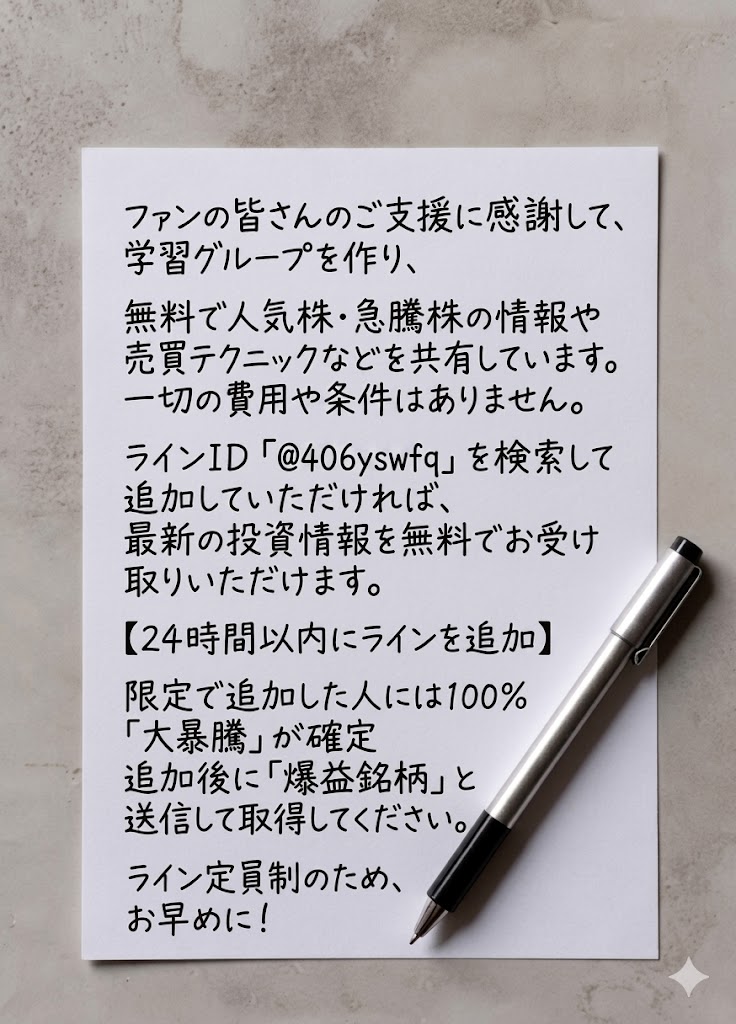 ファンの皆さんのご支援に感謝して、
学習グループを作り、
無料で人気株・急騰株の情報や
売買テクニックなどを共有しています。
一切の費用や条件はありません。
ラインID「@406yswfq」を検索して
追加していただければ、
最新の投資情報を無料でお受け
取りいただけます。
【24時間以内にラインを追加】
限定で追加した人には100%
「大暴騰」が確定
追加後に「爆益銘柄」と
送信して取得してください。
ライン定員制のため、
お早めに！